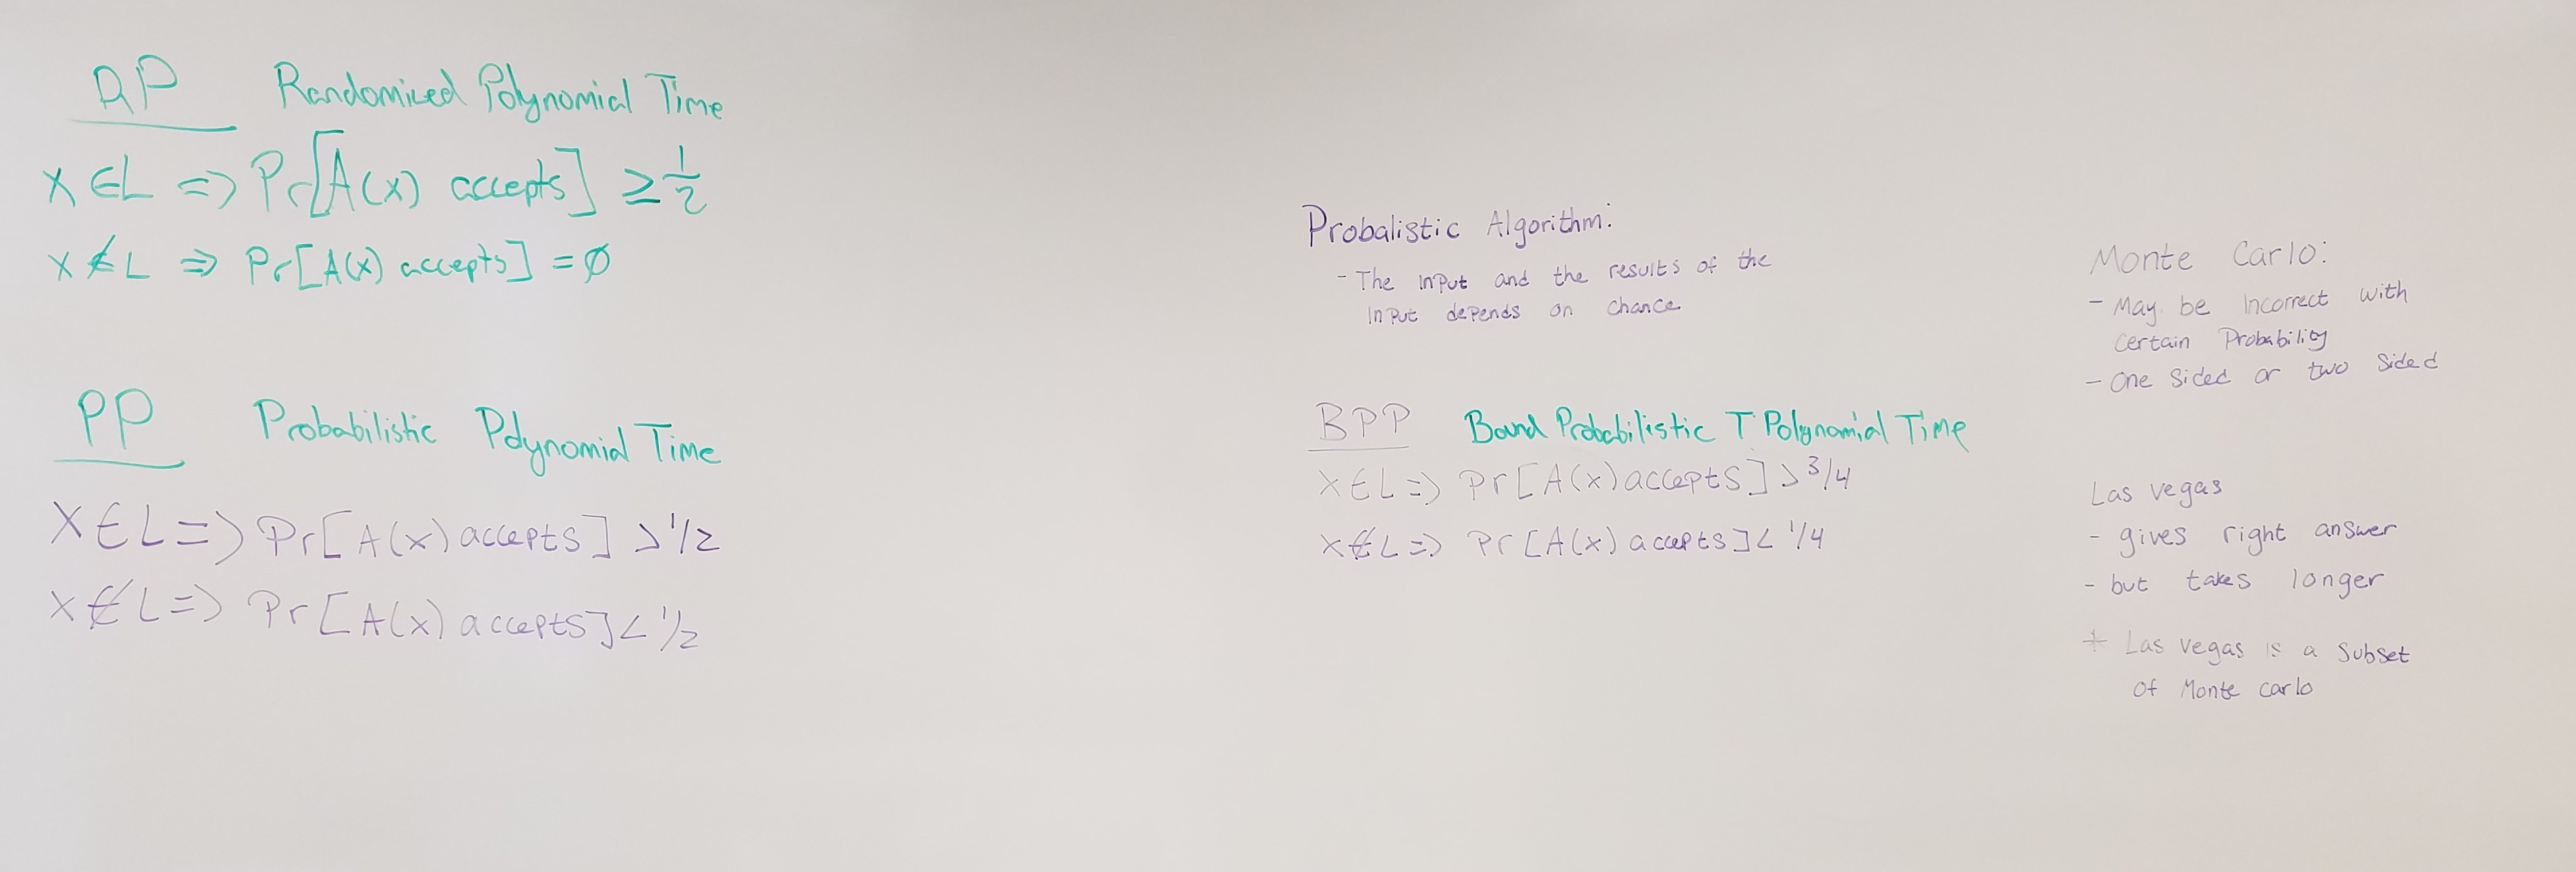 RP Randomized Polynomial Time
x ∈ L => Pr[A(x) accepts] ≥ 1/2
x ∉ L => Pr[A(x) accepts] = ∅
PP Probabilistic Polynomial Time
X ∈ L => Pr[A(x) accepts] > 1/2
X ∉ L => Pr[A(x) accepts] < 1/2
Probalistic Algorithm:
- The input and the results of the
input depends on chance
BPP Bound Probabilistic T Polynomial Time
X ∈ L => Pr[A(x) accepts] > 3/4
X ∉ L => Pr[A(x) accepts] < 1/4
Monte Carlo:
- May be Incorrect with
certain Probability
- One sided or two sided
Las Vegas
- gives right answer
- but takes longer
* Las Vegas is a subset
of Monte Carlo